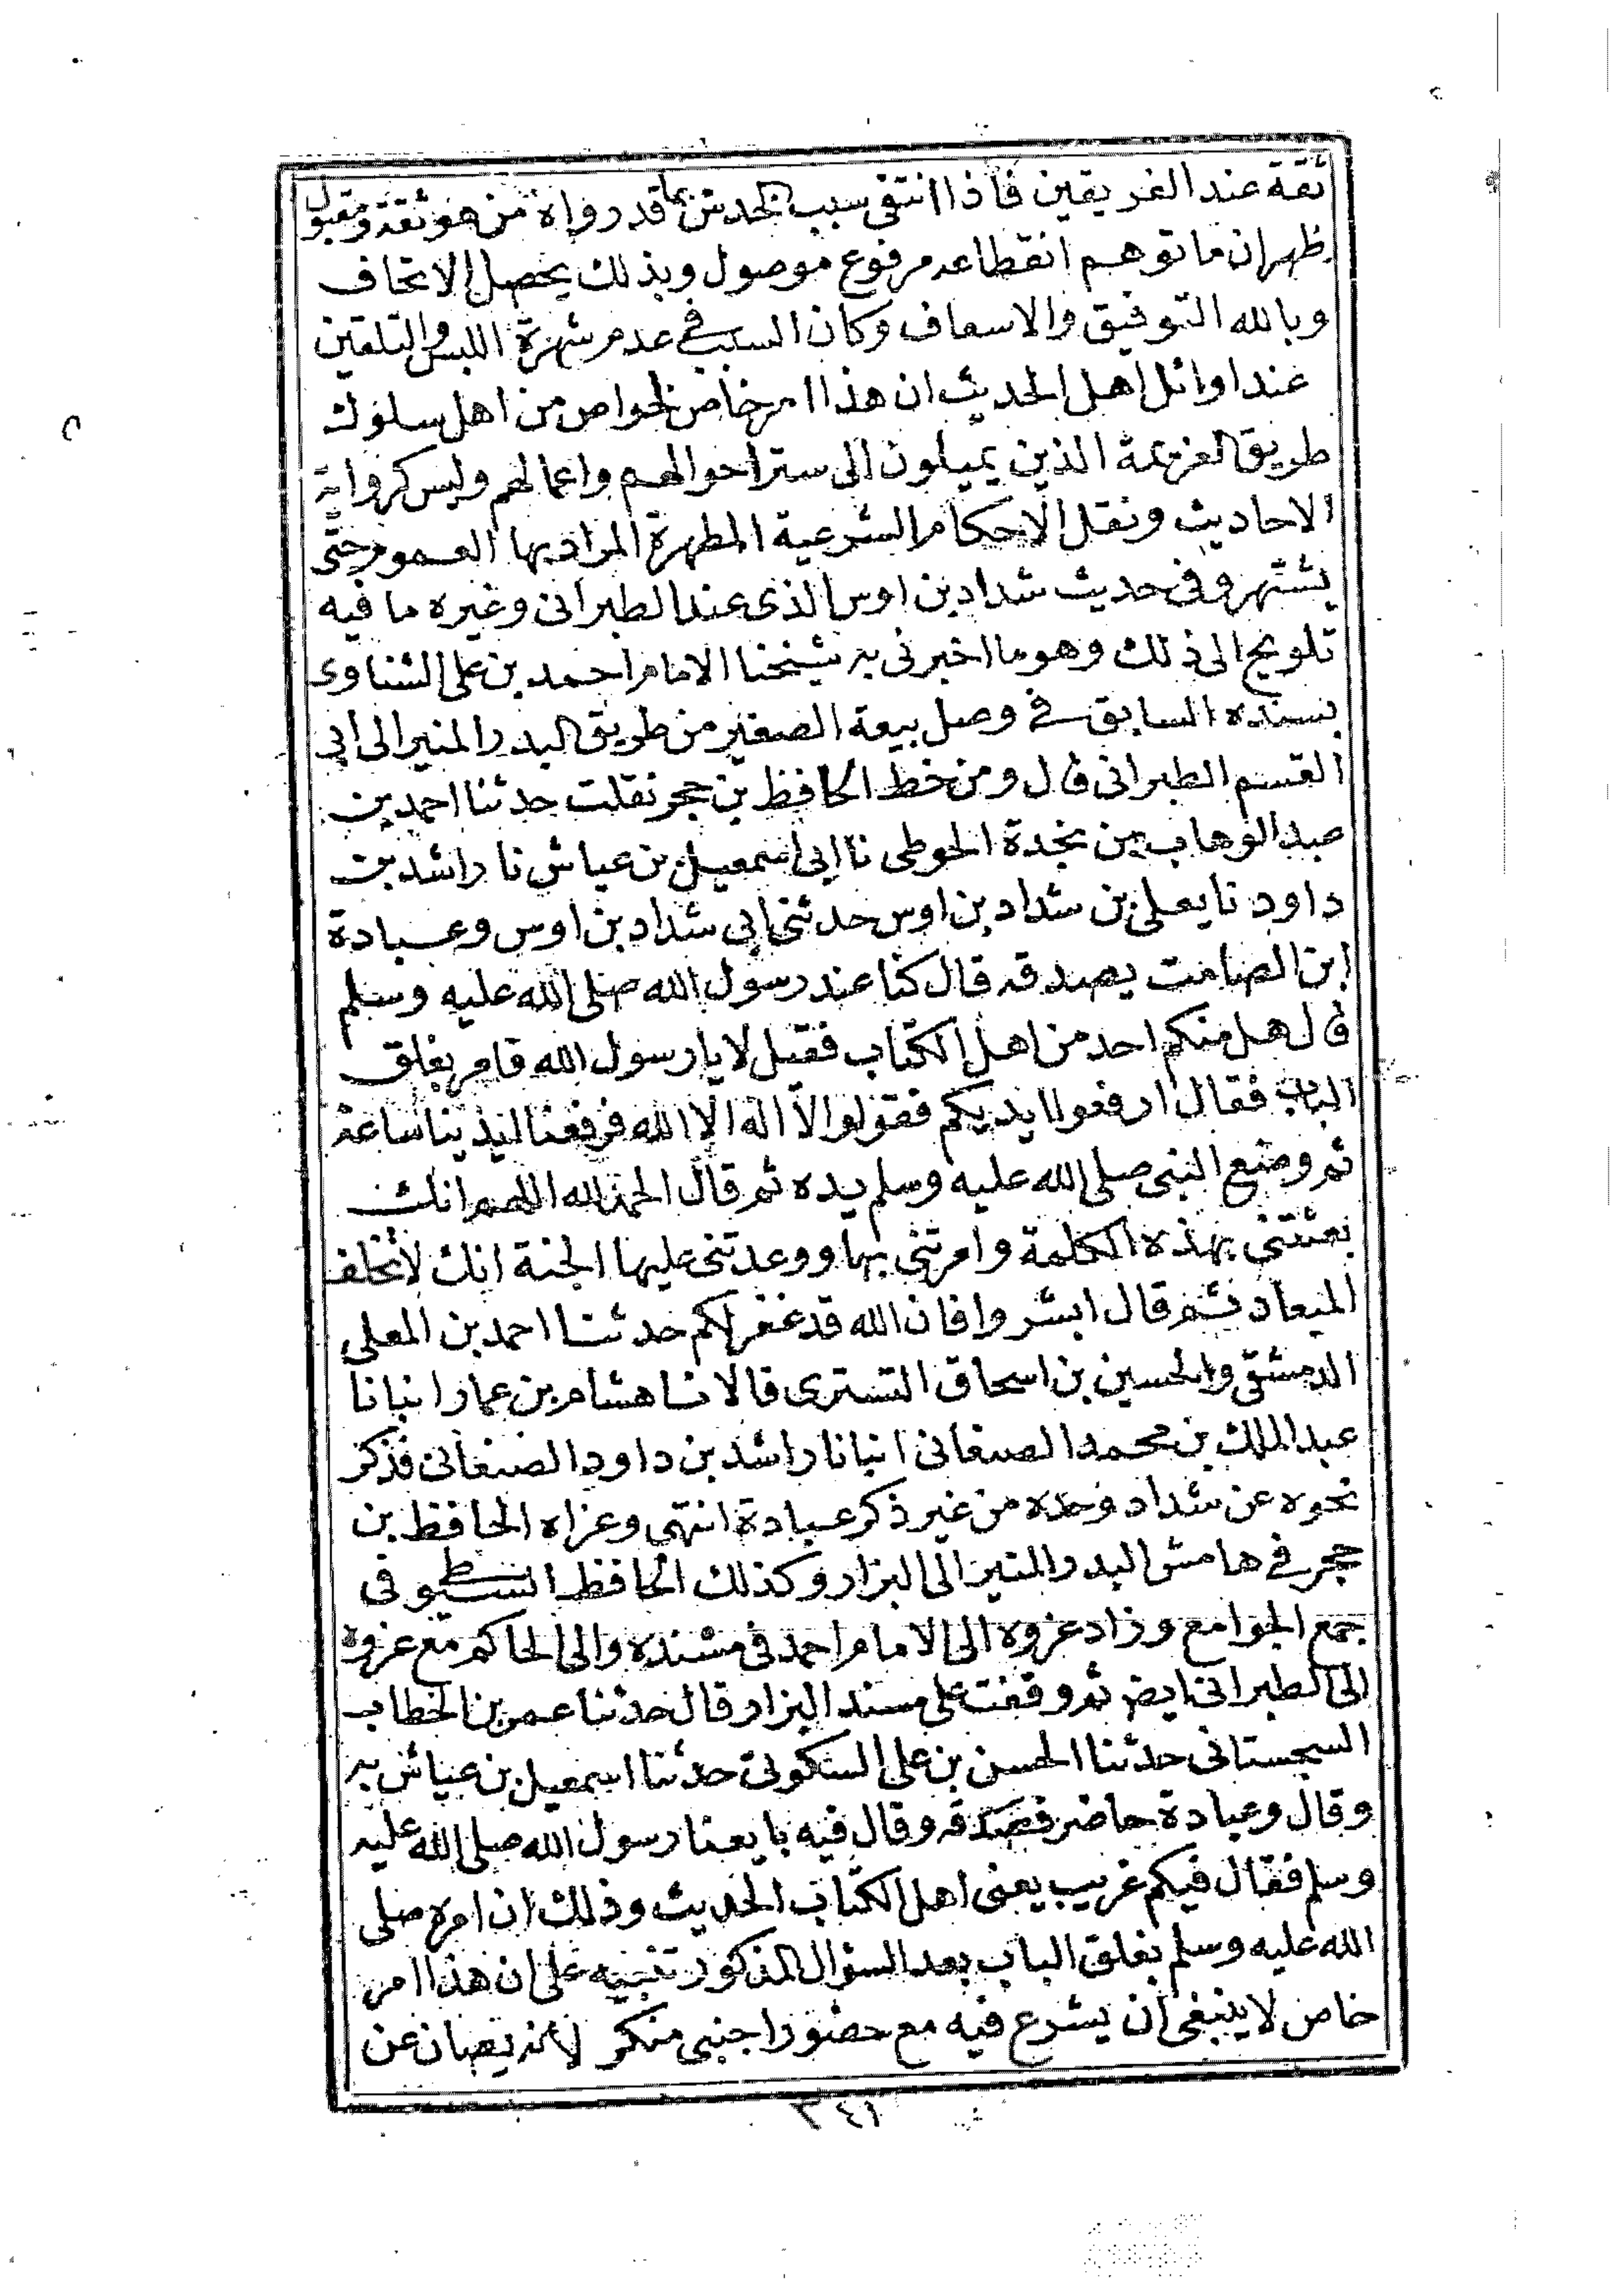 ثقة عند الفريقين فاذا انتفى سبب الخدش بما قد رواه من هو ثقة ومقبول
ظهر ان ما توهم انقطاعه مرفوع موصول وبذلك يحصل الاتحاف
وبالله التوفيق والاسعاف وكان السبب في عدم شهرة اللبس والتلقين
عند اوائل اهل الحديث ان هذا امر خاص لخواص من اهل سلوك
طريق العزيمة الذين يميلون الى ستر احوالهم واعمالهم وليس كرواية
الاحاديث ونقل الاحكام الشرعية المطهرة المراد بها العموم حتى
يشتهر وفى حديث شداد بن اوس الذى عند الطبرانى وغيره ما فيه
تلويح الى ذلك وهو ما اخبرنى به شيخنا الامام احمد بن على الشناوى
بسنده السابق في وصل بيعة الصغير من طريق البدر المنير الى ابى
القسم الطبرانى قال ومن خط الحافظ بن حجر نقلت حدثنا احمد بن
عبد الوهاب بن نجدة الحوطى نا ابى اسمعيل بن عياش نا راشد بن
داود نا يعلى بن شداد بن اوس حدثنى ابى شداد بن اوس وعبادة
ابن الصامت يصدقه قال كنا عند رسول الله صلى الله عليه وسلم
قال هل منكم احد من اهل الكتاب فقيل لا يا رسول الله فامر بغلق
الباب فقال ارفعوا ايديكم فقولوا لا اله الا الله فرفعنا ايدينا ساعة
ثم وضع النبى صلى الله عليه وسلم يده ثم قال الحمد لله اللهم انك
بعثتنى بهذه الكلمة وامرتنى بها ووعدتنى عليها الجنة انك لا تخلف
الميعاد ثم قال ابشروا فان الله قد غفر لكم حدثنا احمد بن المعلى
الدمشقى والحسين بن اسحاق التسترى قالا نا هشام بن عمار انبانا
عبد الملك بن محمد الصنعانى انبانا راشد بن داود الصنعانى فذكر
نحوه عن شداد وحده من غير ذكر عبادة انتهى وعزاه الحافظ بن
حجر في هامش البدر المنير الى البزار وكذلك الحافظ السيوطى فى
جمع الجوامع وزاد عزوه الى الامام احمد فى مسنده والى الحاكم مع عزوه
الى الطبرانى ايضا ثم وقفت على مسند البزار قال حدثنا عمر بن الخطاب
السجستانى حدثنا الحسن بن على السكونى حدثنا اسمعيل بن عياش به
وقال وعبادة حاضر فصدقه وقال فيه بايعنا رسول الله صلى الله عليه
وسلم فقال فيكم غريب يعنى اهل الكتاب الحديث وذلك ان امره صلى
الله عليه وسلم بغلق الباب بعد السؤال المذكور تنبيه على ان هذا امر
خاص لا ينبغى ان يشرع فيه مع حضور اجنبى منكر لانه يصان عن
٣٤١